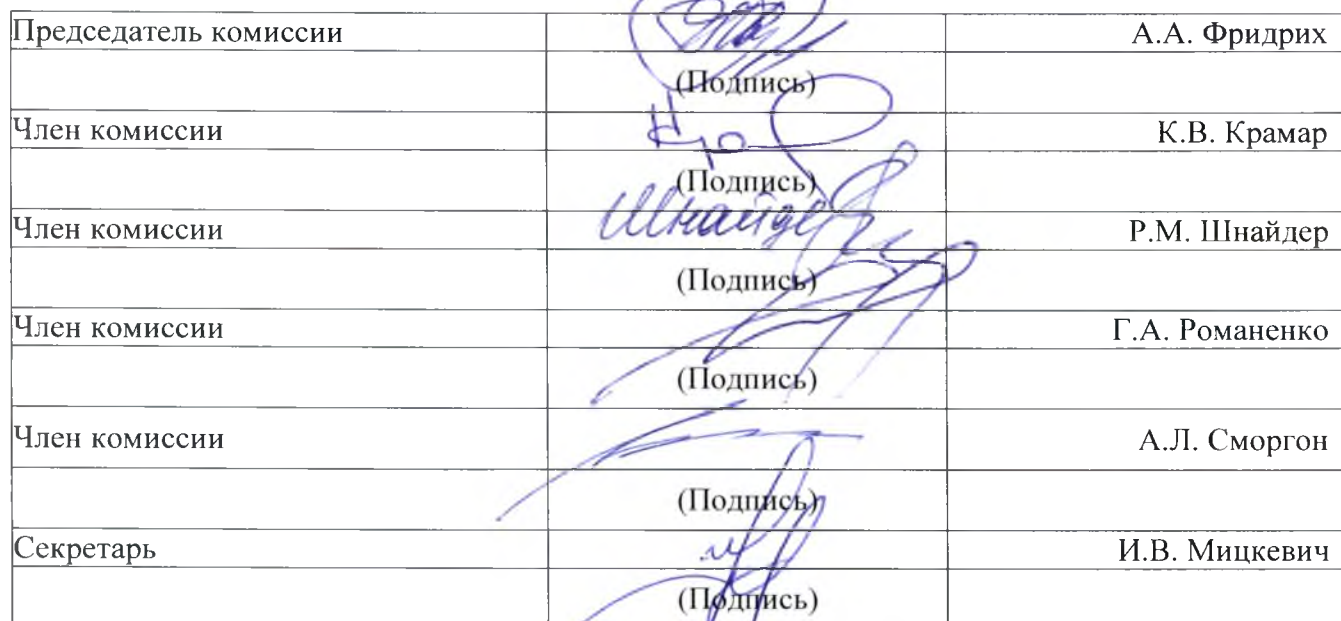 Председатель комиссии А.А. Фридрих
(Подпись)
Член комиссии К.В. Крамар
(Подпись)
Шнайдер
Член комиссии Р.М. Шнайдер
(Подпись)
Член комиссии Г.А. Романенко
(Подпись)
Член комиссии А.Л. Сморгон
(Подпись)
Секретарь И.В. Мицкевич
(Подпись)